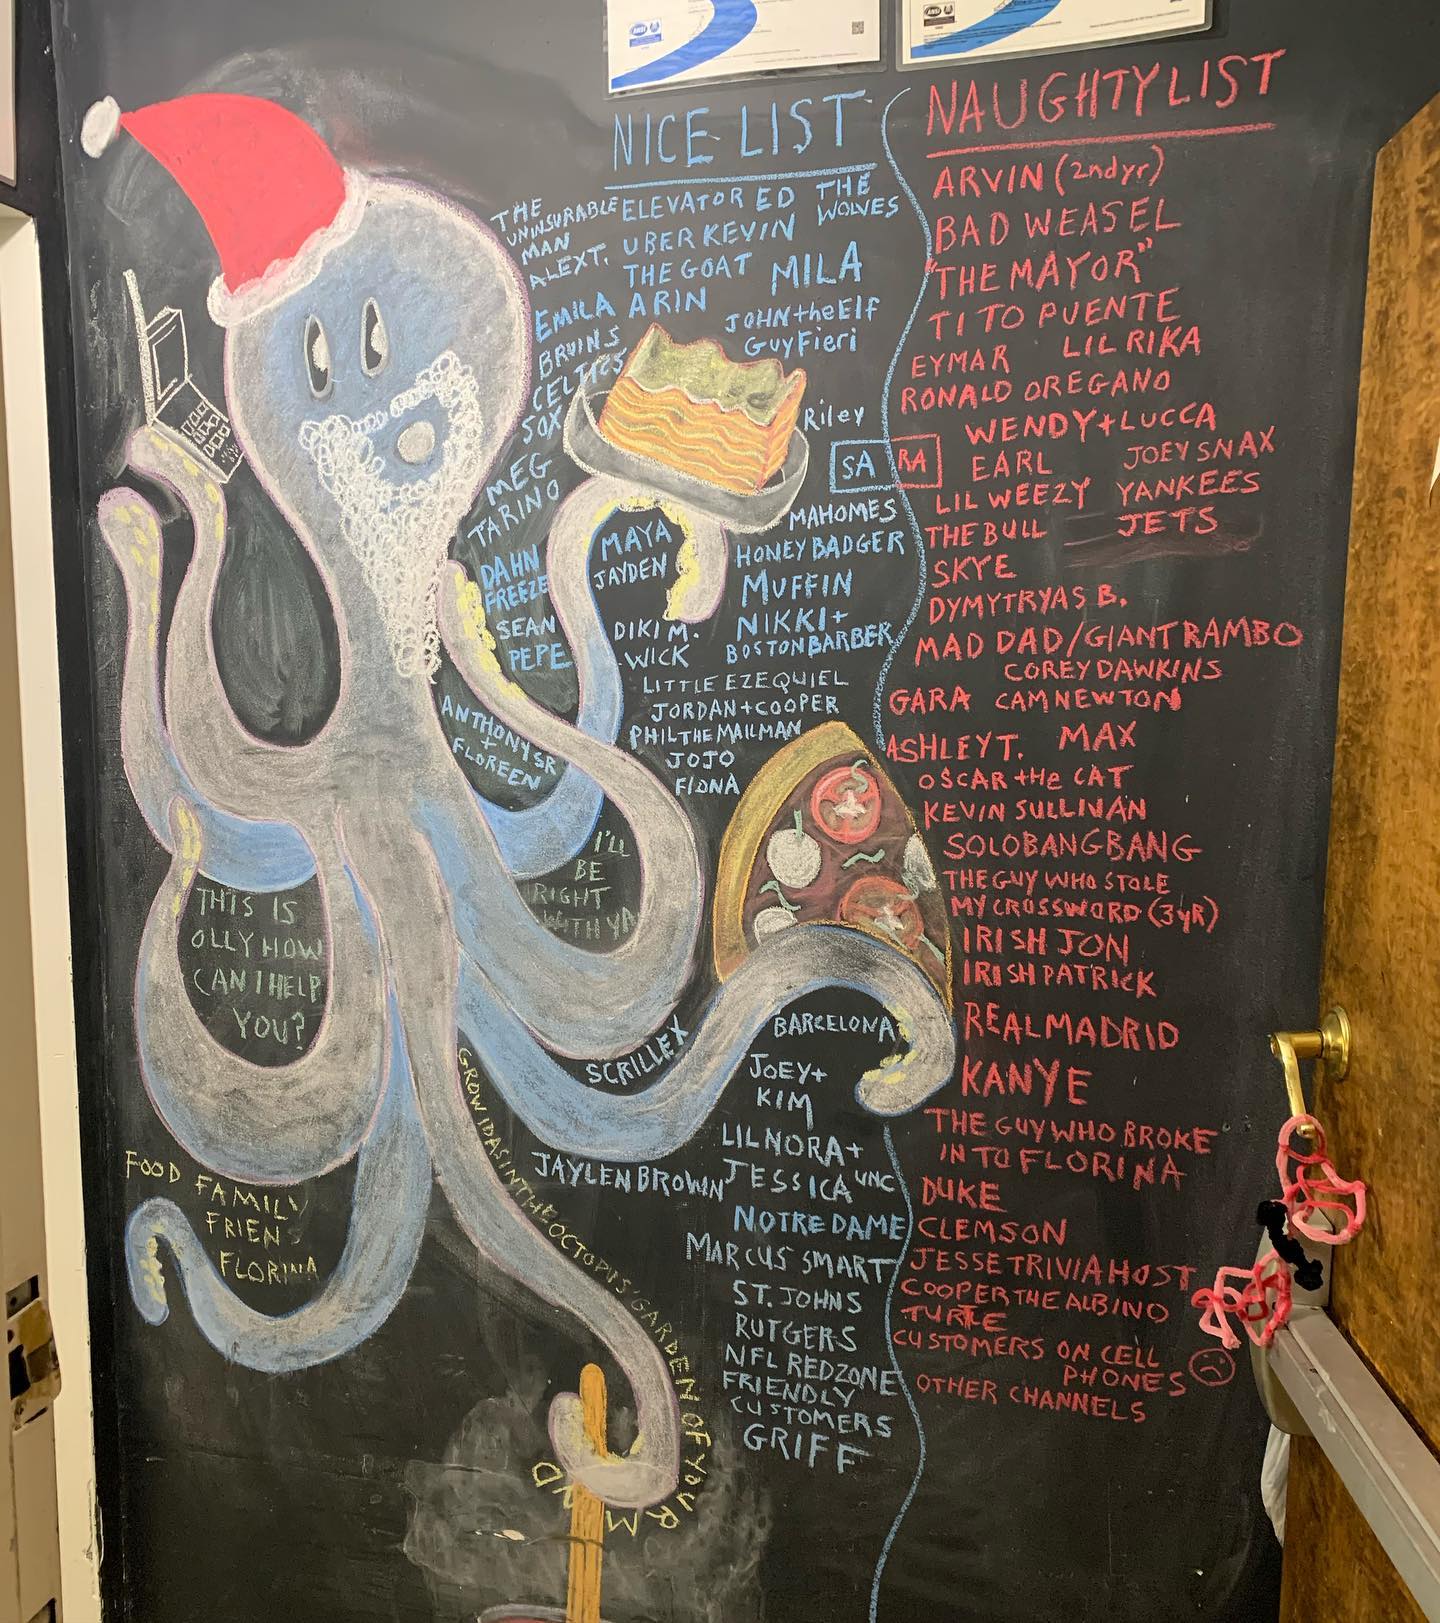 NICE LIST
THE UNINSURABLE MAN
ELEVATOR ED
THE WOLVES
ALEX T.
UBER KEVIN
THE GOAT
MILA
EMILA
ARIN
JOHN the Elf
Guy Fieri
BRUINS
CELTICS
SOX
Riley
SA
MEG
TARINO
MAHOMES
MAYA
JAYDEN
HONEY BADGER
DAHN
FREEZE
MUFFIN
SEAN
PEPE
DIKI M.
WICK
NIKKI +
BOSTON BARBER
LITTLE EZEQUIEL
JORDAN + COOPER
PHIL THE MAILMAN
JOJO
FIONA
ANTHONY SR
+
FLOREEN
I'LL
BE
RIGHT
WITH YA
THIS IS
OLLY HOW
CAN I HELP
YOU?
BARCELONA
SCRILLEX
JOEY +
KIM
LIL NORA +
JESSICA
UNC
JAYLEN BROWN
NOTRE DAME
MARCUS SMART
ST. JOHNS
RUTGERS
NFL REDZONE
FRIENDLY
CUSTOMERS
GRIFF
FOOD FAMILY
FRIENS
FLORINA
GROW IDAS IN THE OCTOPUS' GARDEN OF YOUR MIND
NAUGHTY LIST
ARVIN (2nd yr)
BAD WEASEL
"THE MAYOR"
TITO PUENTE
EYMAR LIL RIKA
RONALD OREGANO
WENDY + LUCCA
RA
EARL JOEY SNAX
LIL WEEZY YANKEES
THE BULL JETS
SKYE
DYMYTRYAS B.
MAD DAD/GIANT RAMBO
COREY DAWKINS
GARA CAM NEWTON
ASHLEY T. MAX
OSCAR tHe CAT
KEVIN SULLIVAN
SOLOBANGBANG
THE GUY WHO STOLE
MY CROSSWORD (3yR)
IRISH JON
IRISH PATRICK
REAL MADRID
KANYE
THE GUY WHO BROKE
IN TO FLORINA
DUKE
CLEMSON
JESSE TRIVIA HOST
COOPER THE ALBINO
TURTLE
CUSTOMERS ON CELL
PHONES
OTHER CHANNELS